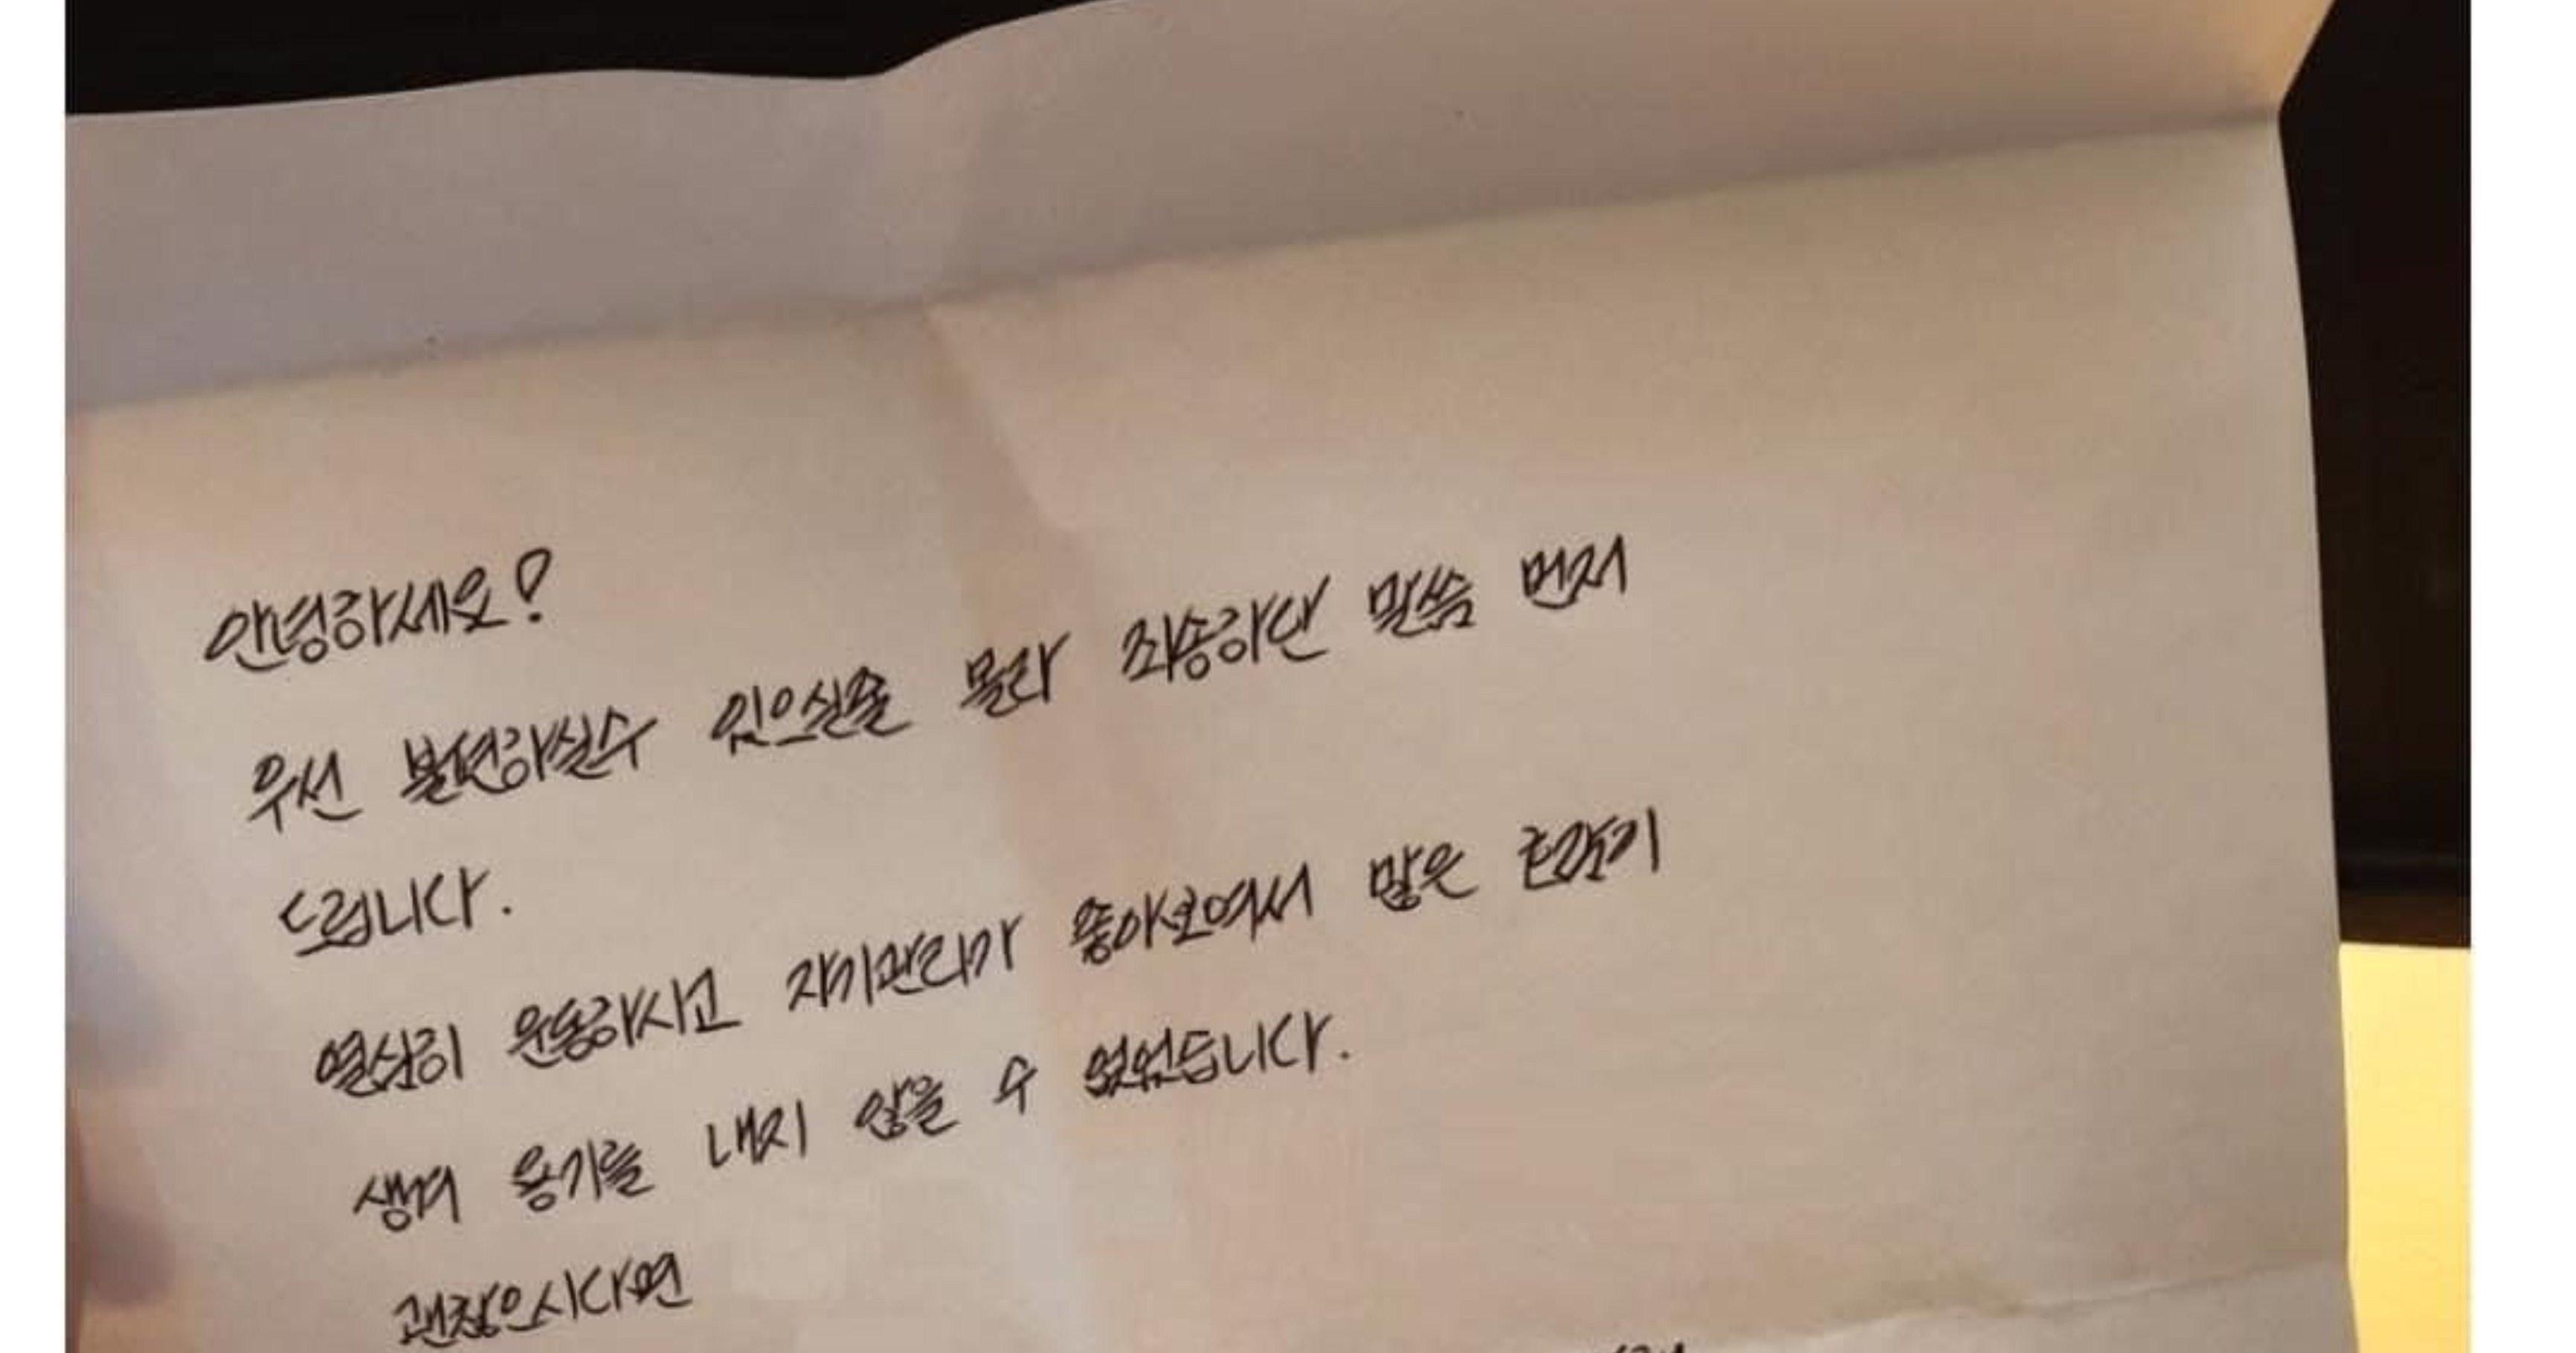 안녕하세요!
우선 불편하실수 있으실줄 몰라 죄송하단 말씀 먼저
드립니다.
열심히 운동하시고 자기관리가 좋아보여서 많은 호감이
생겨 용기를 내지 않을 수 없었습니다.
괜찮으시다면